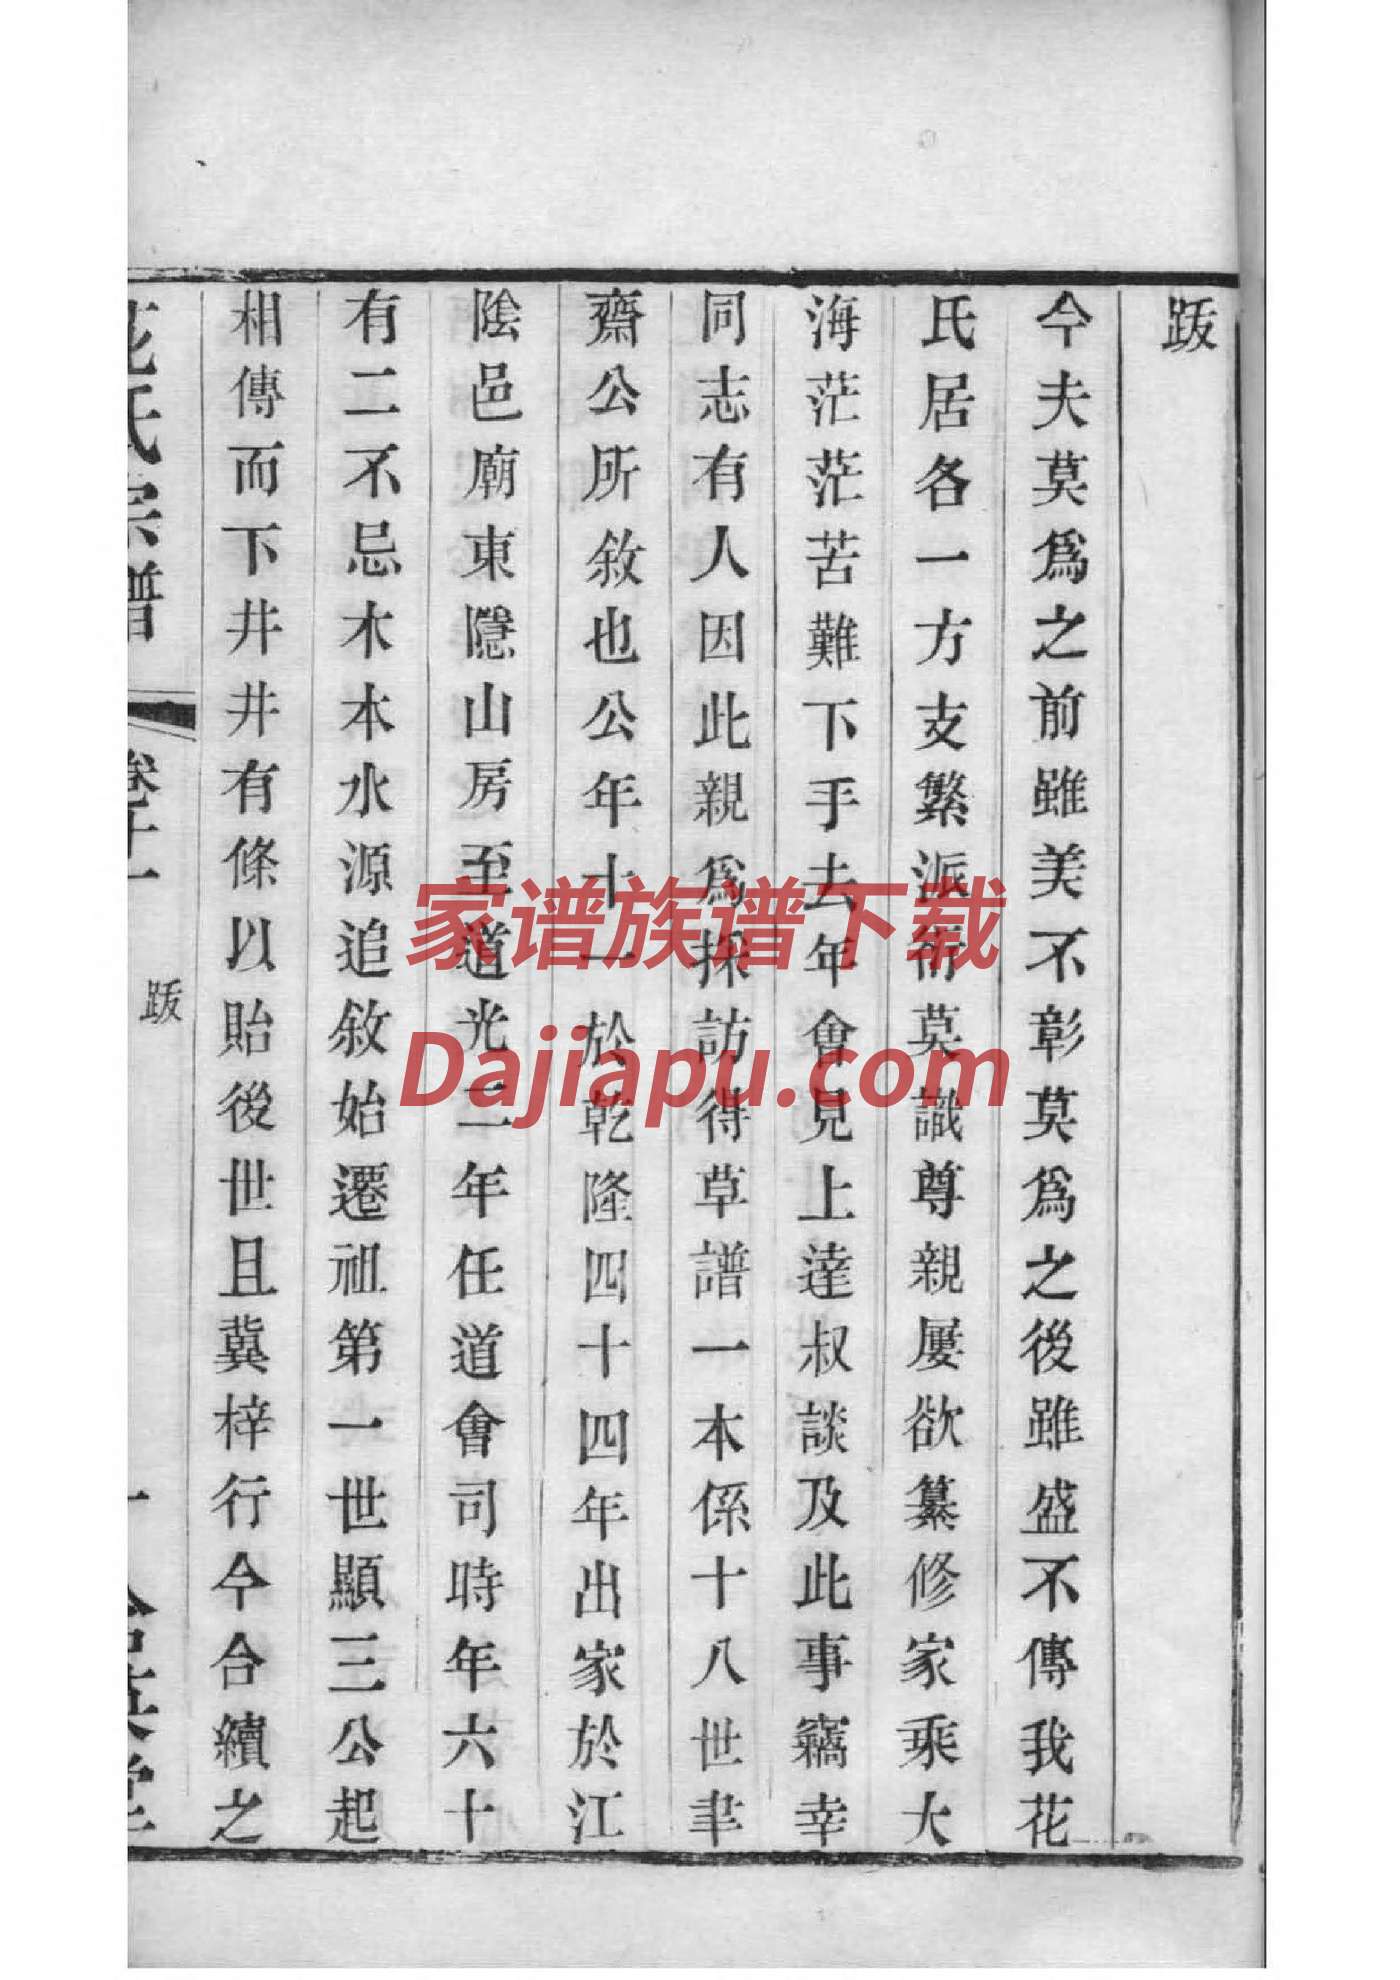 跋
今夫莫爲之前雖美不彰莫爲之後雖盛不傳我花
氏居各一方支繁派衍莫識尊親屢欲纂修家乘大
海茫茫苦難下手去年會見上達叔談及此事竊幸
同志有人因此親爲採訪得草譜一本係十八世聿
齋公所敘也公年十一於乾隆四十四年出家於江
陰邑廟東隱山房至道光二年任道會司時年六十
有二不忌木本水源追敘始遷祖第一世顯三公起
相傳而下井井有條以貽後世且冀梓行今合續之
花氏宗譜
卷十一
跋
家谱族谱下载
Dajiapu.com